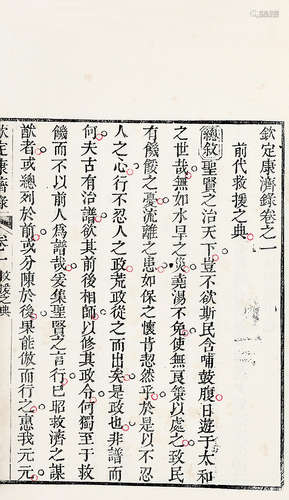 欽定康濟錄卷之一
前代救援之典
總敘聖賢之治天下豈不欲斯民含哺鼓腹日遊于太和
之世哉無如水旱之災堯湯不免使無良策以處之政民
有饑餒之憂流離之患如保之懷肯恝然乎於是以不忍
人之心行不忍人之政荒政從之而出矣是政也非譜而
何夫古有治譜欲其前後相師以修其政今何獨至于救
饑而不以前人為譜哉爰集聖賢之言行已昭救濟之謀
猷者或總列於前或分陳於後果能倣而行之惠我元元
欽定康濟錄 卷一 救援之典